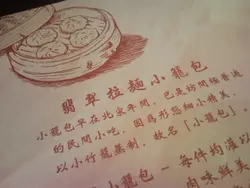 翡翠拉麵小籠包
小籠包早在北宋年間，已是坊間極普遍
的民間小吃，因為形態細小精美，
以小竹籠蒸制，故名「小籠包」。
小籠包 － 每件均灌以
肉味鮮美